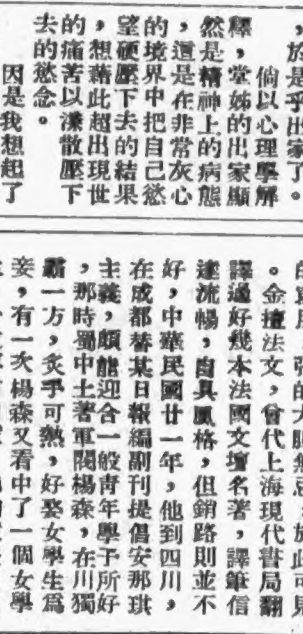 ，於是乎出家了。
倘以心理學解
釋，堂姊的出家顯
然是精神上的病態
，這是在非常灰心
的境界中把自己慾
望硬壓下去的結果
，想藉此超出現世
的痛苦以渙散壓下
去的慾念。
因是我想起了
，於此可見
。金擅法文，曾代上海現代書局翻
譯過好幾本法國文壇名著，譯筆信
達流暢，自具風格，但銷路則並不
好，中華民國廿一年，他到四川，
在成都替某日報編副刊提倡安那琪
主義，頗能迎合一般靑年學子所好
，那時蜀中土著軍閥楊森，在川獨
霸一方，炙乎可熱，好娶女學生爲
妾，有一次楊森又看中了一個女學